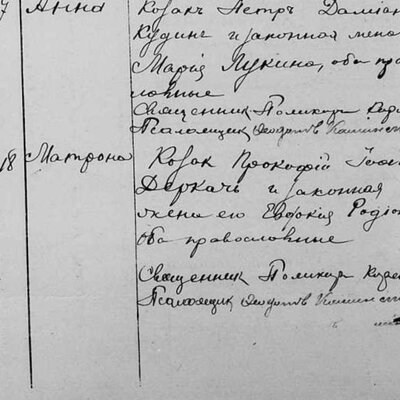 7 Анна Козакъ Петръ Даміан
Кудинъ и законная жена
Марія Лукина, оба пра
лавные
Священник Поликарп
Псаломщик Феодотов
18 Матрона Козак Прокофій
Деркачъ и законная
жена его Евдокія Родіо
оба православные
Священник Поликарп
Псаломщик Феодотов